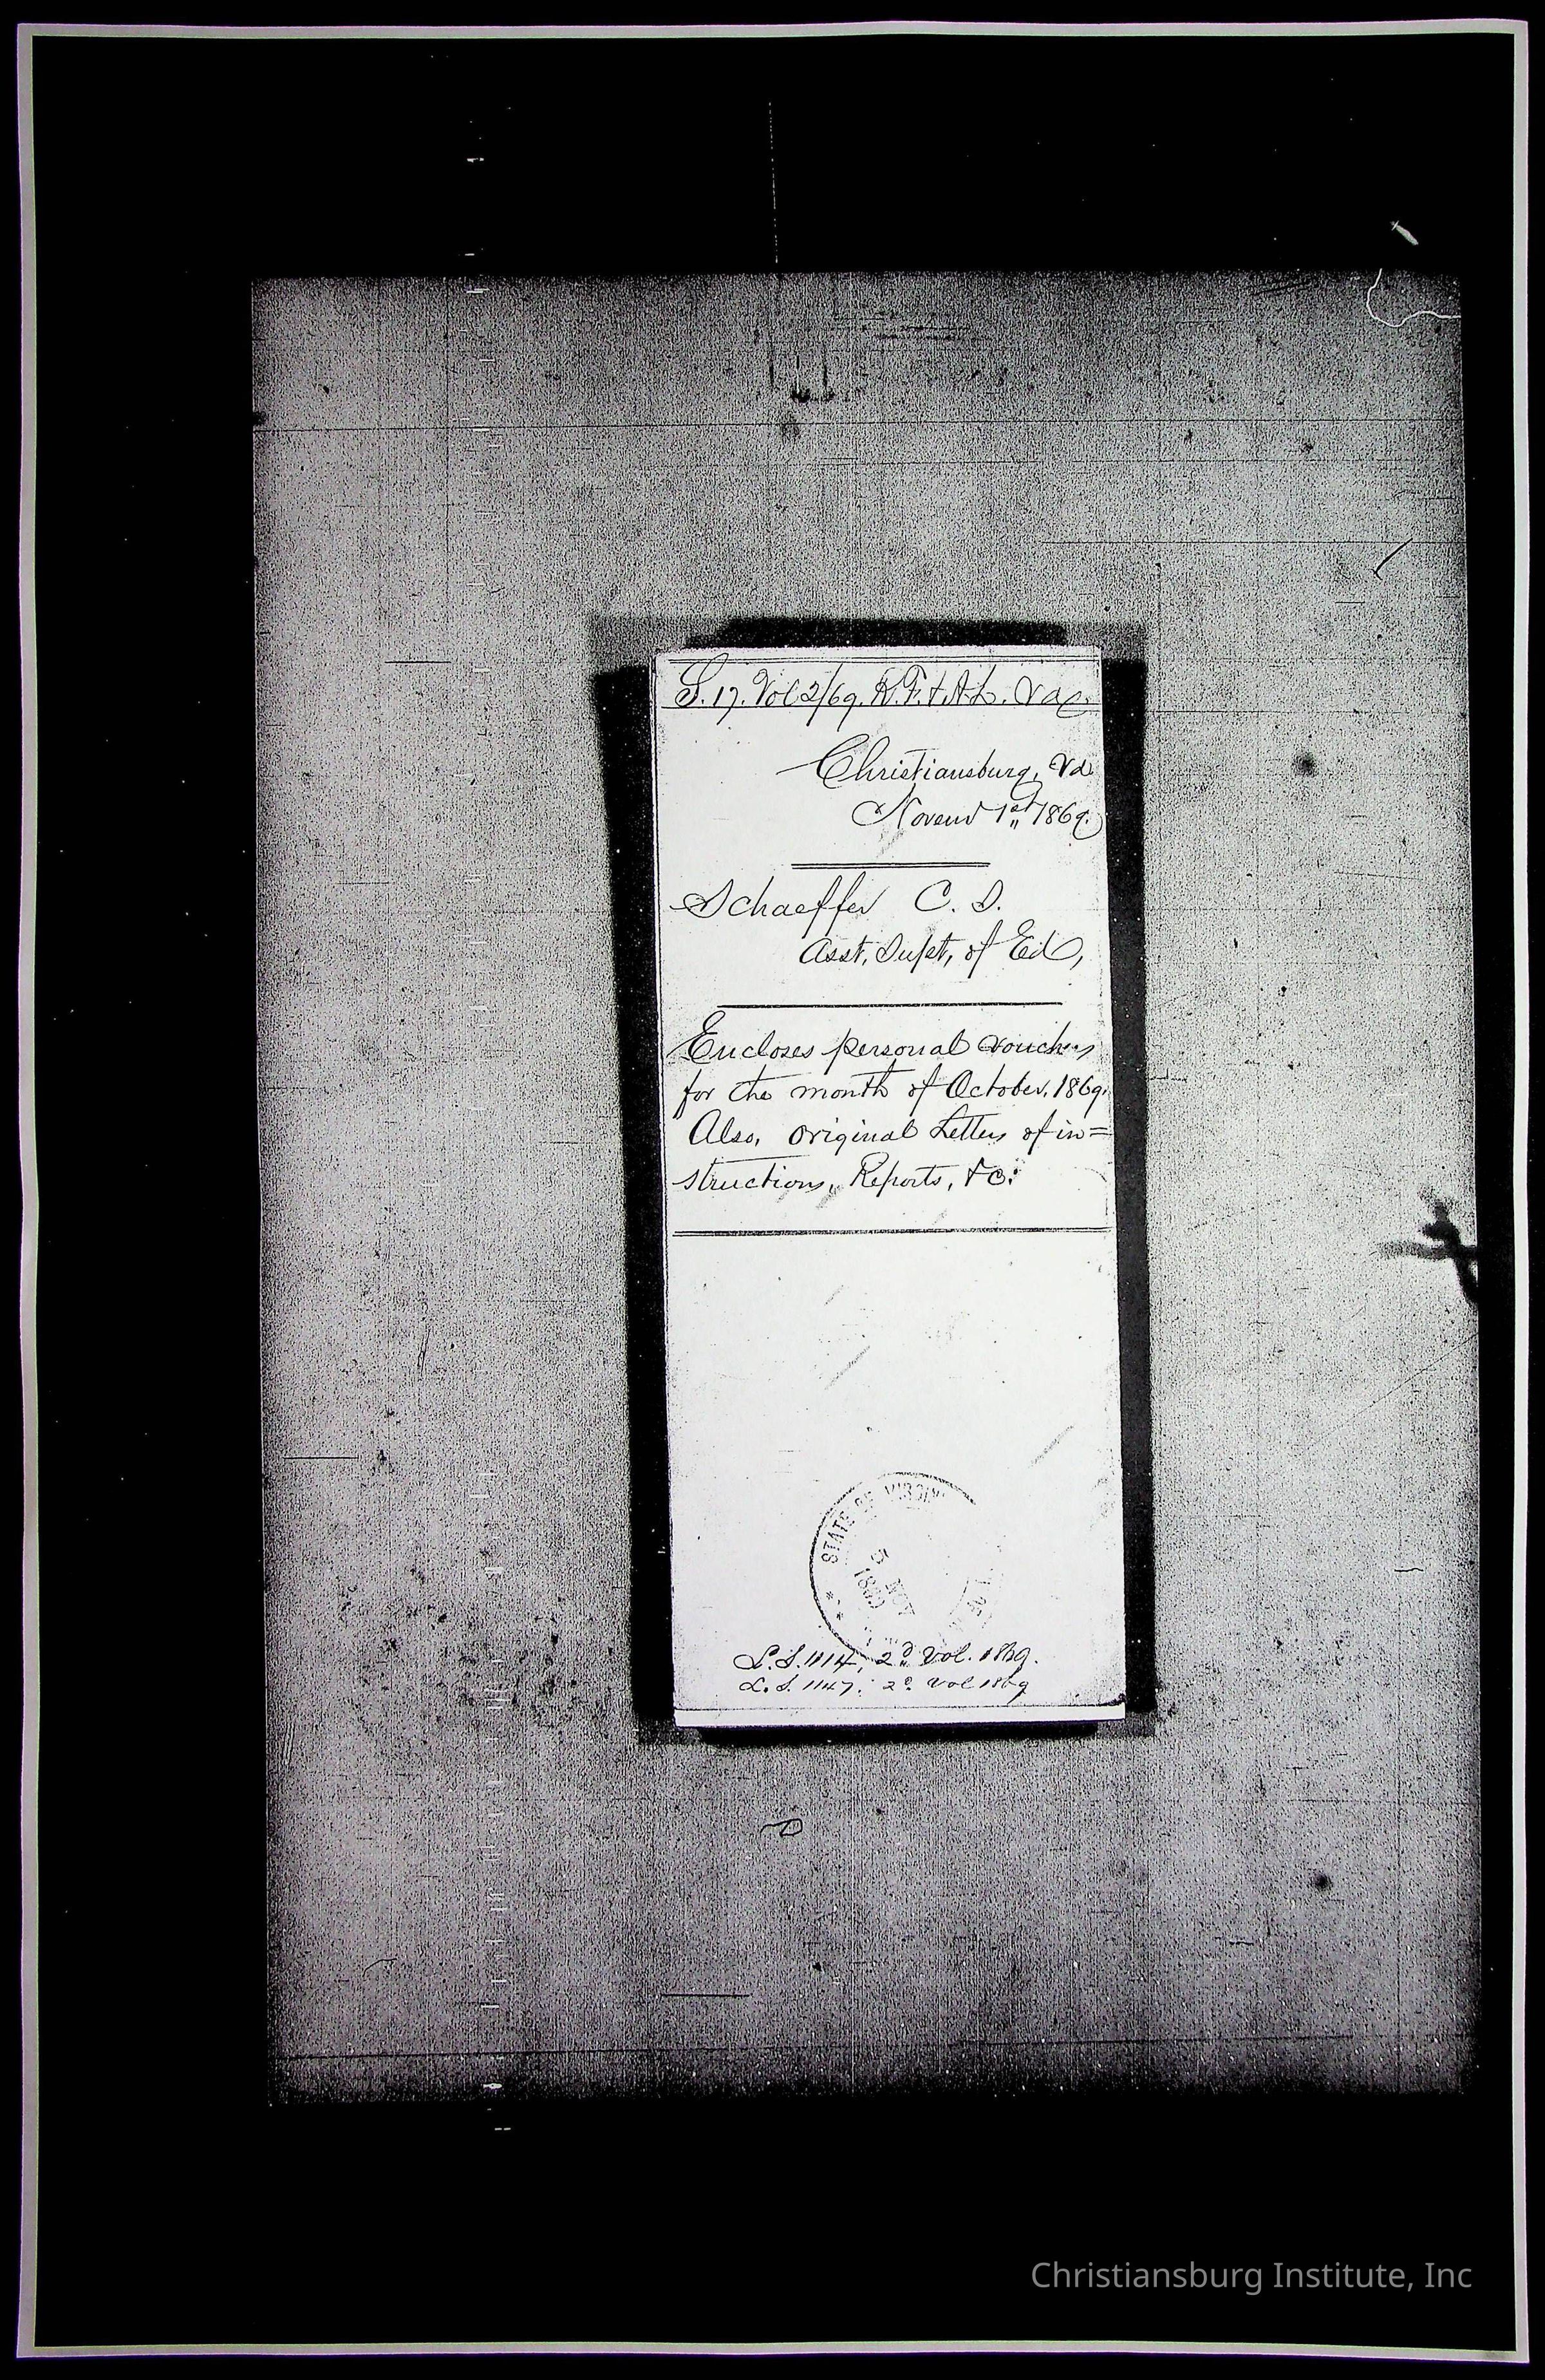 S. 17. Vol 2/69. R. F. & A. L. Va.
Christiansburg, Va
Novem 1st 1869.
Schaeffer C. S.
Asst. Supt, of Ed,
Encloses personal vouchers
for the month of October, 1869.
Also, original Letters of in=
structions, Reports, &c.
STATE OF VIRGINI
5 NOV
1869
L. S. 1114, 2d Vol. 1869.
L. S. 1147, 2d Vol 1869
Christiansburg Institute, Inc